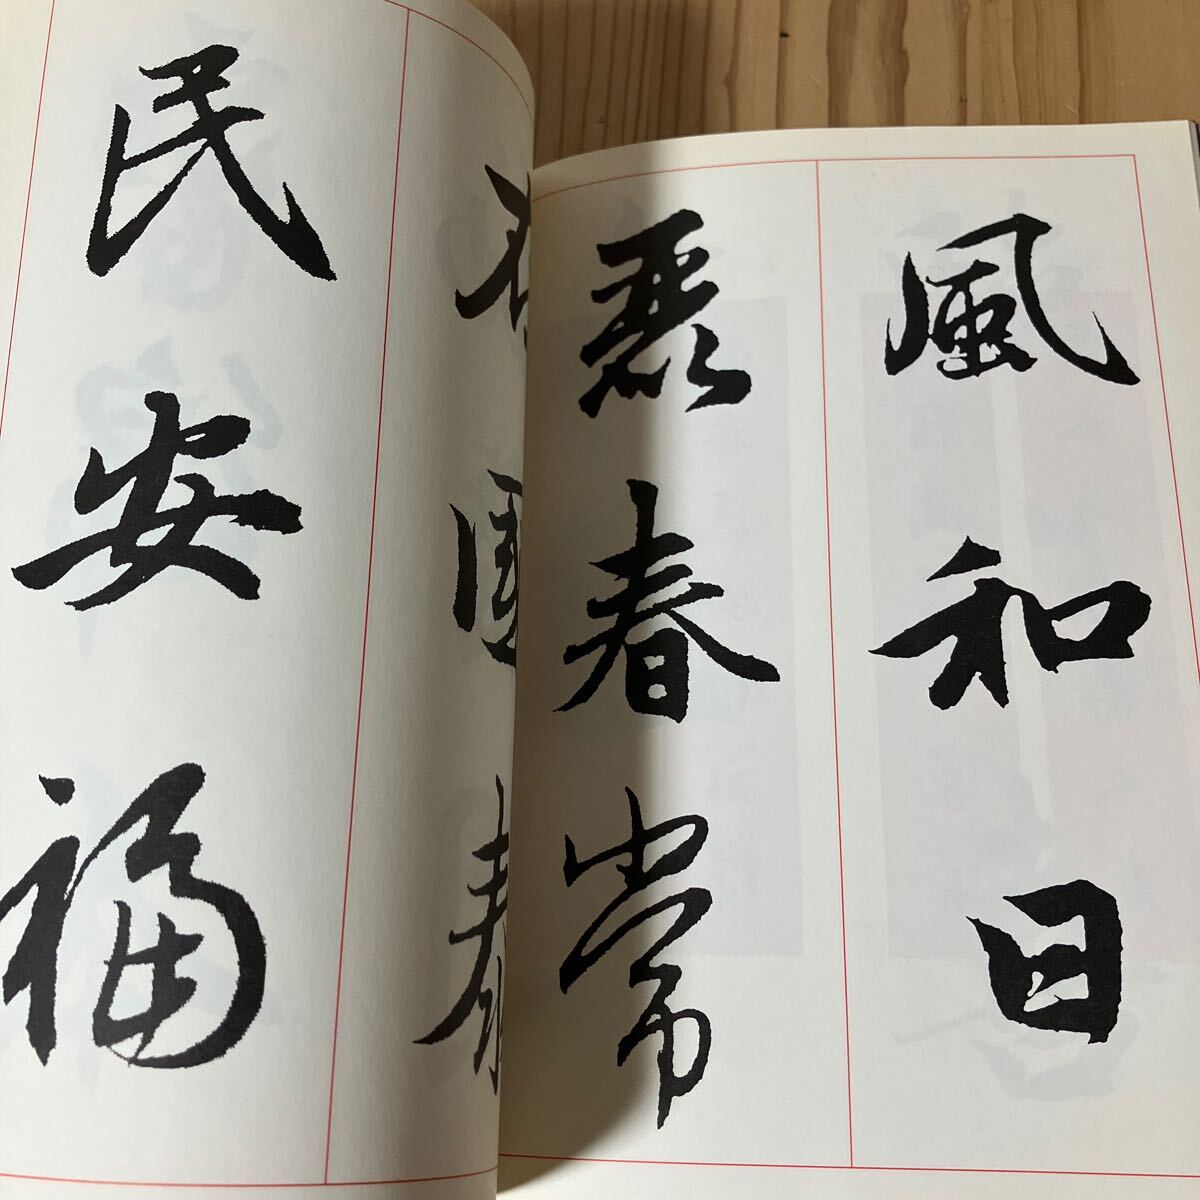 風和日
麗春常
在國泰
民安福